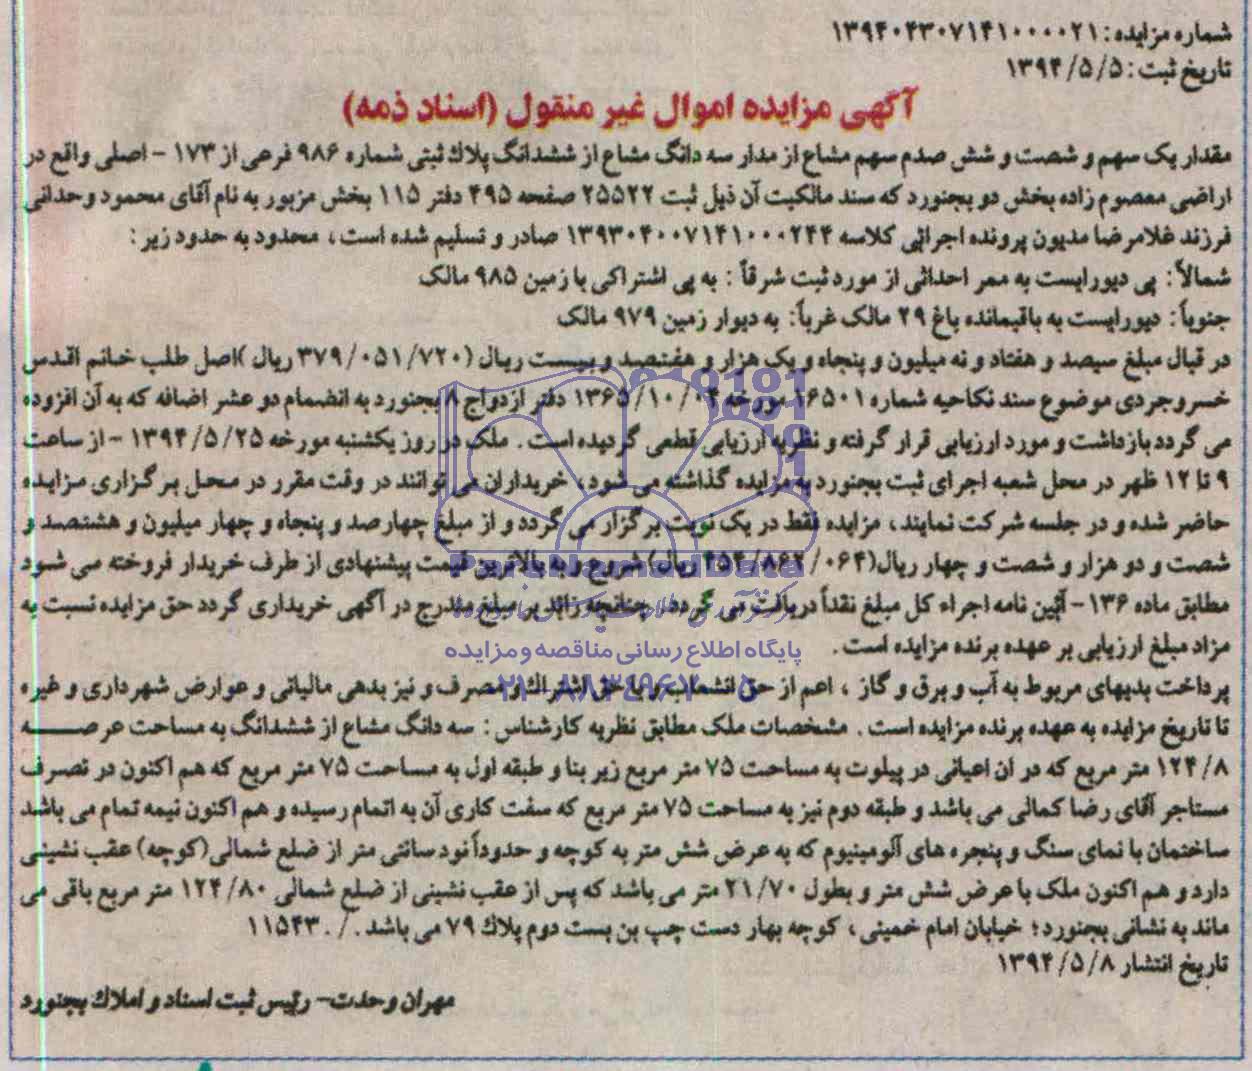 شماره مزایده: ۱۳۹۴۰۴۳۰۷۱۴۱۰۰۰۰۲۱
تاریخ ثبت: ۱۳۹۴/۵/۵
آگهی مزایده اموال غیر منقول (اسناد ذمه)
مقدار یک سهم و شصت و شش صدم سهم مشاع از مدار سه دانگ مشاع از ششدانگ پلاك ثبتی شماره ۹۸۶ فرعی از ۱۷۳ - اصلی واقع در
اراضی معصوم زاده بخش دو بجنورد که سند مالکیت آن ذیل ثبت ۲۵۵۲۲ صفحه ۴۹۵ دفتر ۱۱۵ بخش مزبور به نام آقای محمود وحدانی
فرزند غلامرضا مدیون پرونده اجرائی کلاسه ۱۳۹۳۰۴۰۰۷۱۴۱۰۰۰۲۴۴ صادر و تسلیم شده است، محدود به حدود زیر:
شمالاً: پی دیورایست به ممر احداثی از مورد ثبت شرقاً : به پی اشتراکی با زمین ۹۸۵ مالک
جنوباً: دیورایست به باقیمانده باغ ۲۹ مالک غرباً: به دیوار زمین ۹۷۹ مالک
در قبال مبلغ سیصد و هفتاد و نه میلیون و پنجاه و یک هزار و هفتصد و بیست ریال (۳۷۹/۰۵۱/۷۲۰ ریال )اصل طلب خانم اقدس
خسروجردی موضوع سند نکاحیه شماره ۱۶۵۰۱ مورخه ۱۳۶۵/۱۰/۰۴ دفتر ازدواج ۸ بجنورد به انضمام دو عشر اضافه که به آن افزوده
می گردد بازداشت و مورد ارزیابی قرار گرفته و نظریه ارزیابی قطعی گردیده است . ملک در روز یکشنبه مورخه ۱۳۹۴/۵/۲۵ - از ساعت
۹ تا ۱۲ ظهر در محل شعبه اجرای ثبت بجنورد به مزایده گذاشته می شود، خریداران می توانند در وقت مقرر در محل برگزاری مزایده
حاضر شده و در جلسه شرکت نمایند، مزایده فقط در یک نوبت برگزار می گردد و از مبلغ چهارصد و پنجاه و چهار میلیون و هشتصد و
شصت و دو هزار و شصت و چهار ریال(۴۵۴/۸۶۲/۰۶۴ ریال) شروع و به بالاترین قیمت پیشنهادی از طرف خریدار فروخته می شود
مطابق ماده ۱۳۶- آئین نامه اجراء کل مبلغ نقداً دریافت می گردد، چنانچه زائد بر مبلغ مندرج در آگهی خریداری گردد حق مزایده نسبت به
مزاد مبلغ ارزیابی بر عهده برنده مزایده است .
پایگاه اطلاع رسانی مناقصه و مزایده
پرداخت بدیهای مربوط به آب و برق و گاز ، اعم از حق انشعاب و یا حق اشتراك و مصرف و نیز بدهی مالیاتی و عوارض شهرداری و غیره
۰۲۱-۸۸۳۴۹۶۷۰-۵
تا تاریخ مزایده به عهده برنده مزایده است . مشخصات ملک مطابق نظریه کارشناس : سه دانگ مشاع از ششدانگ به مساحت عرصه
۱۲۴/۸ متر مربع که در ان اعیانی در پیلوت به مساحت ۷۵ متر مربع زیر بنا و طبقه اول به مساحت ۷۵ متر مربع که هم اکنون در تصرف
مستاجر آقای رضا کمالی می باشد و طبقه دوم نیز به مساحت ۷۵ متر مربع که سفت کاری آن به اتمام رسیده و هم اکنون نیمه تمام می باشد
ساختمان با نمای سنگ و پنجره های آلومینیوم که به عرض شش متر به کوچه و حدوداً نود سانتی متر از ضلع شمالی(کوچه) عقب نشینی
دارد و هم اکنون ملک با عرض شش متر و بطول ۲۱/۷۰ متر می باشد که پس از عقب نشینی از ضلع شمالی ۱۲۴/۸۰ متر مربع باقی می
ماند به نشانی بجنورد؛ خیابان امام خمینی، کوچه بهار دست چپ بن بست دوم پلاك ۷۹ می باشد . / . ۱۱۵۴۳
تاریخ انتشار ۱۳۹۴/۵/۸
مهران وحدت- رئیس ثبت اسناد و املاك بجنورد